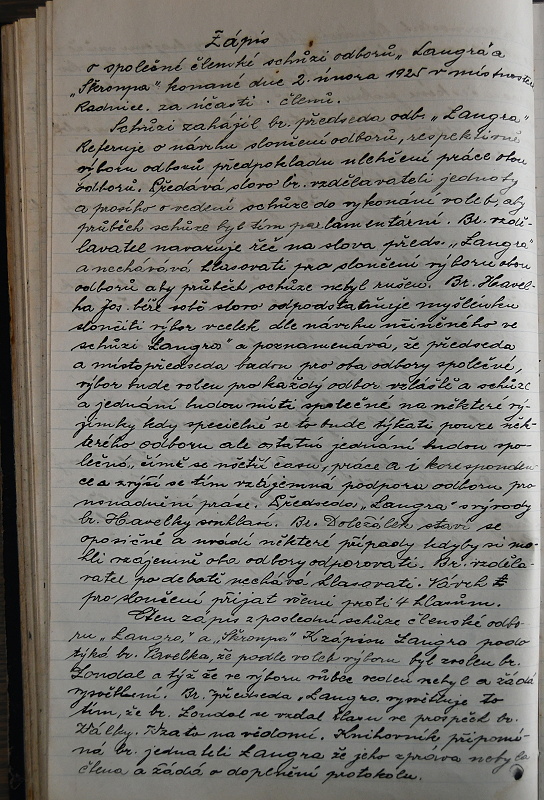 Zápis
o společné členské schůzi odborů „Langra" a
„Škroupa" konané dne 2. února 1925 v místnostech
Radnice. za účasti · členů.
Schůzi zahájil br. předseda odb. „Langra"
Referuje o návrhu sloučení odborů, respektivně
výboru odborů předpokladu ulehčení práce obou
odborů. Předává slovo br. vzdělavateli jednoty
a prosí ho o vedení schůze do vykonání voleb, aby
průběh schůze byl tím parlamentární. Br. vzdě-
lavatel navazuje řeč na slova předs. „Langra"
a nechává hlasovati pro sloučení výboru obou
odborů aby průběh schůze nebyl rušen. Br. Havel-
ka Jos. béře sobě slovo odpodstatňuje myšlénku
sloučiti výbor vcelek dle návrhu učiněného ve
schůzi Langra" a poznamenává, že předseda
a místopředseda budou pro oba odbory společné,
výbor bude volen pro každý odbor zvláště a schůze
a jednání budou míti společné na některé vý-
jimky kdy specielně se to bude týkati pouze něk-
terého odboru ale ostatní jednání budou spo-
lečná, čímž se ušetří času, práce a i koresponden-
ce a zvýší se tím vzájemná podpora odboru pro
usnadnění práce. Předseda „Langra" s vývody
br. Havelky souhlasí. Br. Doležálek staví se
oposičně a uvádí některé případy kdyby si mo-
hli vzájemně oba odbory odporovati. Br. vzděla-
vatel po debatě nechává hlasovati. Návrh
pro sloučení přijat všemi proti 4 hlasům.
Čten zápis z poslední schůze členské odbo-
ru „Langra," a „Škroupa" K zápisu Langra podo-
týká br. Pavelka, že podle voleb výboru byl zvolen br.
Londal a týž že ve výboru vůbec veden nebyl a žádá
vysvětlení. Br. předseda „Langra, vysvětluje to
tím, že br. Londal se vzdal hlasu ve prospěch br.
Války. Vzato na vědomí. Knihovník připomí-
ná br. jednateli Langra že jeho zpráva nebyla
čtena a žádá o doplnění protokolu.